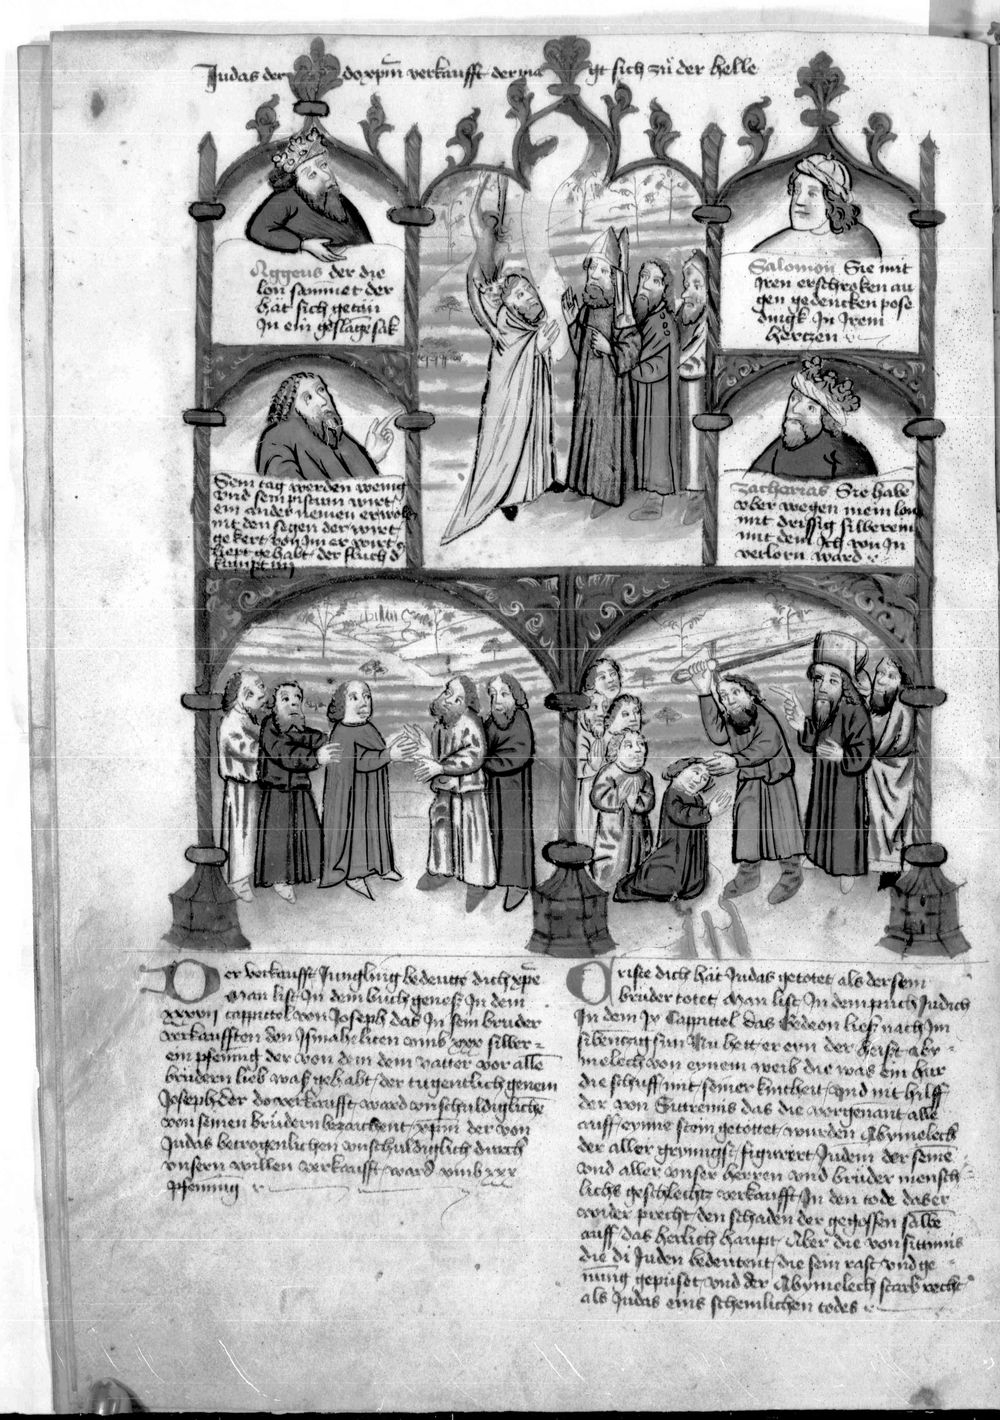 Judas der do xpm verkaufft der na gt sich zů der helle
Aggeus der die
lon sammet der
hat sich getan
In ein geslage sak
Salomon Sie mit
Iren erschroken au
gen gedencken pose
dingk In Irem
hertzen
Sein tag werden wenig
vnd sein pistum wirt
ein ander nemen er wolt
nit den segen der wirt
gekert von im er wirt
liept gehabt der fluch d
kumpt im
Zacharias Sie habe
aber wegen mein lon
mit drissig silberein
mit dem Ich von In
verlorn ward
Der verkaufft Jungling bedeutte dich xpe
Man list In dem buch genes In dem
xxxvii cappittel von Joseph das In sein bruder
verkaufften den Ismaheliten vmb xxx silber
ein pfennig der von dem dem vatter vor alle
brüdern lieb was gehabt der tugentlich genem
Joseph der do verkaufft ward vnschuldigliche
von seinen brüdern bezaichent xpm der von
Judas betrogenlichen vnschuldiglich durch
vnsern willen verkaufft ward vmb xxx
pfennig
Criste dich hat Judas getotet als der sein
brüder totet Man list In dem puch Judich
In dem ix Cappittel das Gedeon lies nach Im
sibentzig sun Nu hett er eyn der heist Abi
melech von eynem weib die was ein hur
die schuff mit seiner kintheit vnd mit hilff
der von Sittemis das die vorgenant alle
auff eynne stein getottet wurden Abymelech
der aller grymigst figurert Judem der seine
vnd aller vnser herren vnd brüder mensch
lichs geschlechtz verkaufft In den tode das er
wider precht den schaden der gegossen salbe
auff das herlich haupt Aber die von sittimis
die di Juden bedeutent die sein rast vnd ge
nung gepüset vnd der Abymelech starb recht
als Judas eins schemlichen todes